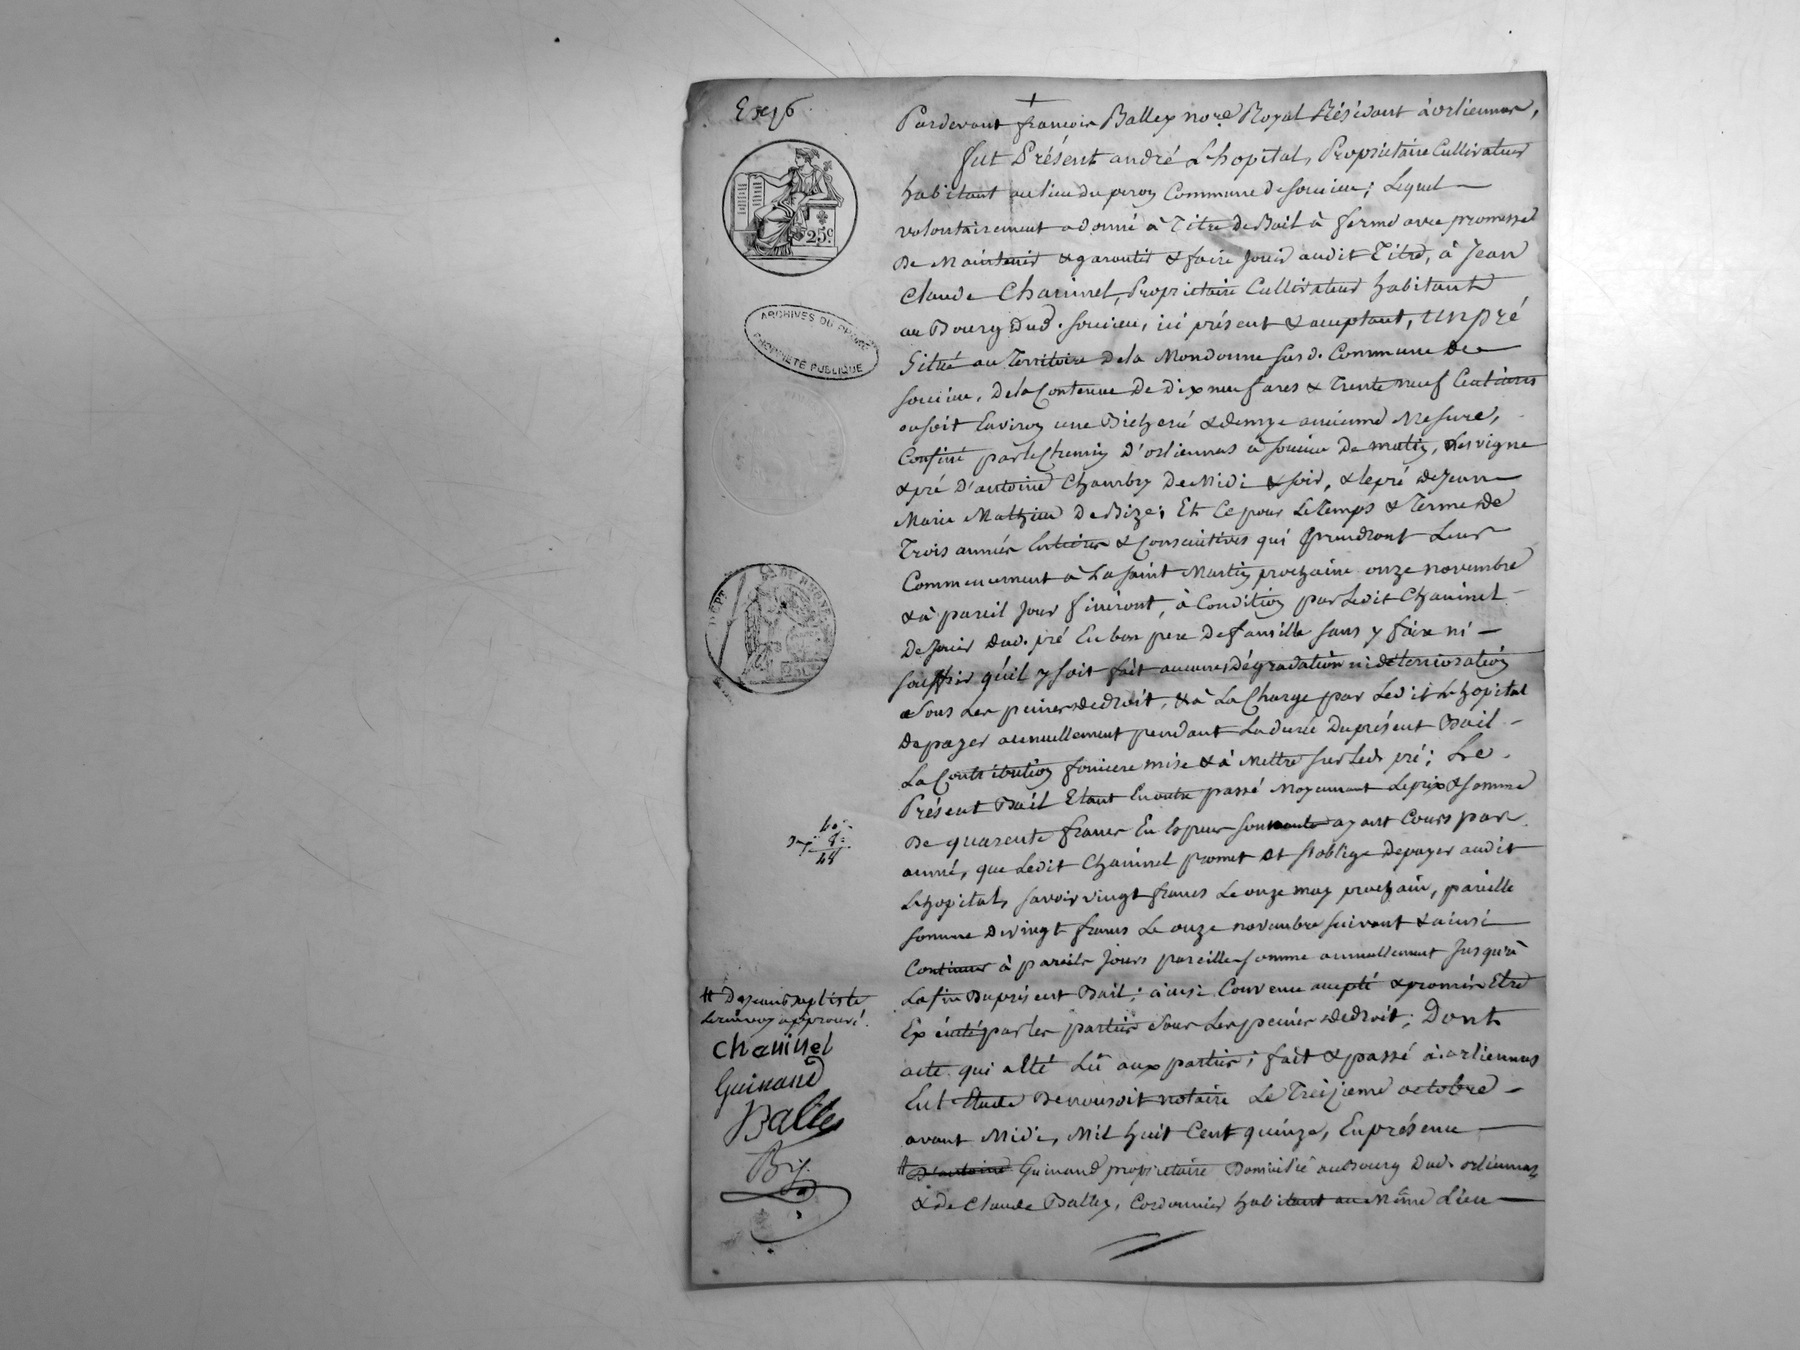 Exp 6
25c
ARCHIVES DU RHÔNE
PROPRIÉTÉ PUBLIQUE
DEPT DU RHONE
Pardevant françois Balley no.re Royal Résidant à orliennas,
fut Présent andré Lhopital, Propriétaire Cultivateur
habitant au lieu du peron Commune de soucieu; Lequel
volontairement a donné à Titre de Bail à ferme avec promesse
De Maintenir & garantir & faire Jouir audit Titre, à Jean
Claude Chavinel, Propriétaire Cultivateur habitant
au Bourg dud. soucieu, ici présent & acceptant, un pré
Situé au Territoire de la Mondonne sur d. Commune De
soucieu, de la Contenue De Dix neuf ares & Trente neuf Centiares
ou soit Environ une Bicherée & demye ancienne Mesure,
Confiné par le Chemin d'orliennas à soucieu De matin, Les vigne
& pré D'antoine Chambry De Midi & soir, & le pré de Jean
Marie Mathieu De Bize; Et Ce pour Le Temps & Terme de
Trois années Entières & Consécutives qui prendront Leur
Commencement à La saint Martin prochaine onze novembre
& à pareil Jour finiront, à Condition par Ledit Chavinel
De Jouir dud. pré En bon pere De famille sans y faire ni
souffrir qu'il y soit fait aucunes dégradation ni déteriosation
sous Les peines de droit, & à La Charge par Ledit Lhopital
De payer annuellement pendant La durée Du présent Bail
La Contribution fonciere mise & à Mettre sur Led. pré; Le
Présent Bail Etant En outre passé Moyennant Le prix & somme
De quarente francs En Especes sonnante ayant Cours par
année, que Ledit Chavinel promet et s'oblige De payer audit
Lhopital, savoir vingt francs Le onze may prochain, pareille
somme de vingt francs Le onze novembre suivant & ainsi
Continuer à pareils Jours pareille somme annuellement Jusqu'à
La fin Du présent Bail; ainsi Convenu accepté & promis Etre
Exécuté par les parties sous Les peines de droit; Dont
acte qui a Eté Lû aux parties; fait & passé à orliennas
En L'Etude De nousdit notaire Le Treizieme octobre
avant Midi, Mil huit Cent quinze, En présence
# D'antoine Guinand propriétaire Domicilié au Bourg Dud. orliennas
& de Claude Balley, Cordonnier habitant au Même Lieu
40
8
48
# De jean Baptiste
Le renvoy approuvé.
Chavinel
Guinand
Balley